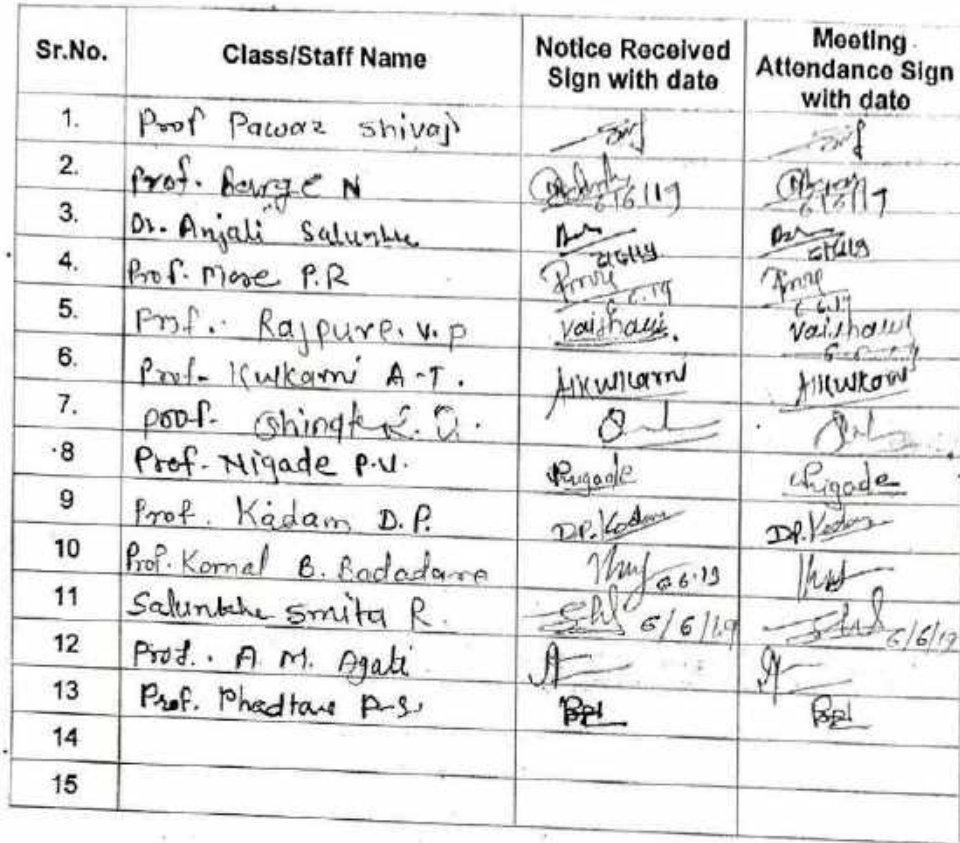 Sr.No. Class/Staff Name Notice Received Sign with date Meeting Attendance Sign with date
1. Prof Pawar Shivaji
2. Prof. Barge N 6/6/19 6/6/19
3. Dr. Anjali Salunkhe 6/6/19 6/6/19
4. Prof. More P.R 6.6.19 6.6.19
5. Prof. Rajpure. V. P Vaishali. Vaishali
6. Prof. Kulkarni A.T. AKulkarni AKulkarni
7. Prof.
8 Prof. Nigade P.V. Pnigade Pnigade
9 Prof. Kadam D.P. DP. Kadam DP. Kadam
10 Prof. Komal B. Badadare 6.6.19
11 Salunkhe Smita R. 6/6/19 6/6/19
12 Prof. A. M. Agati
13 Prof. Phadtare P.S.
14
15